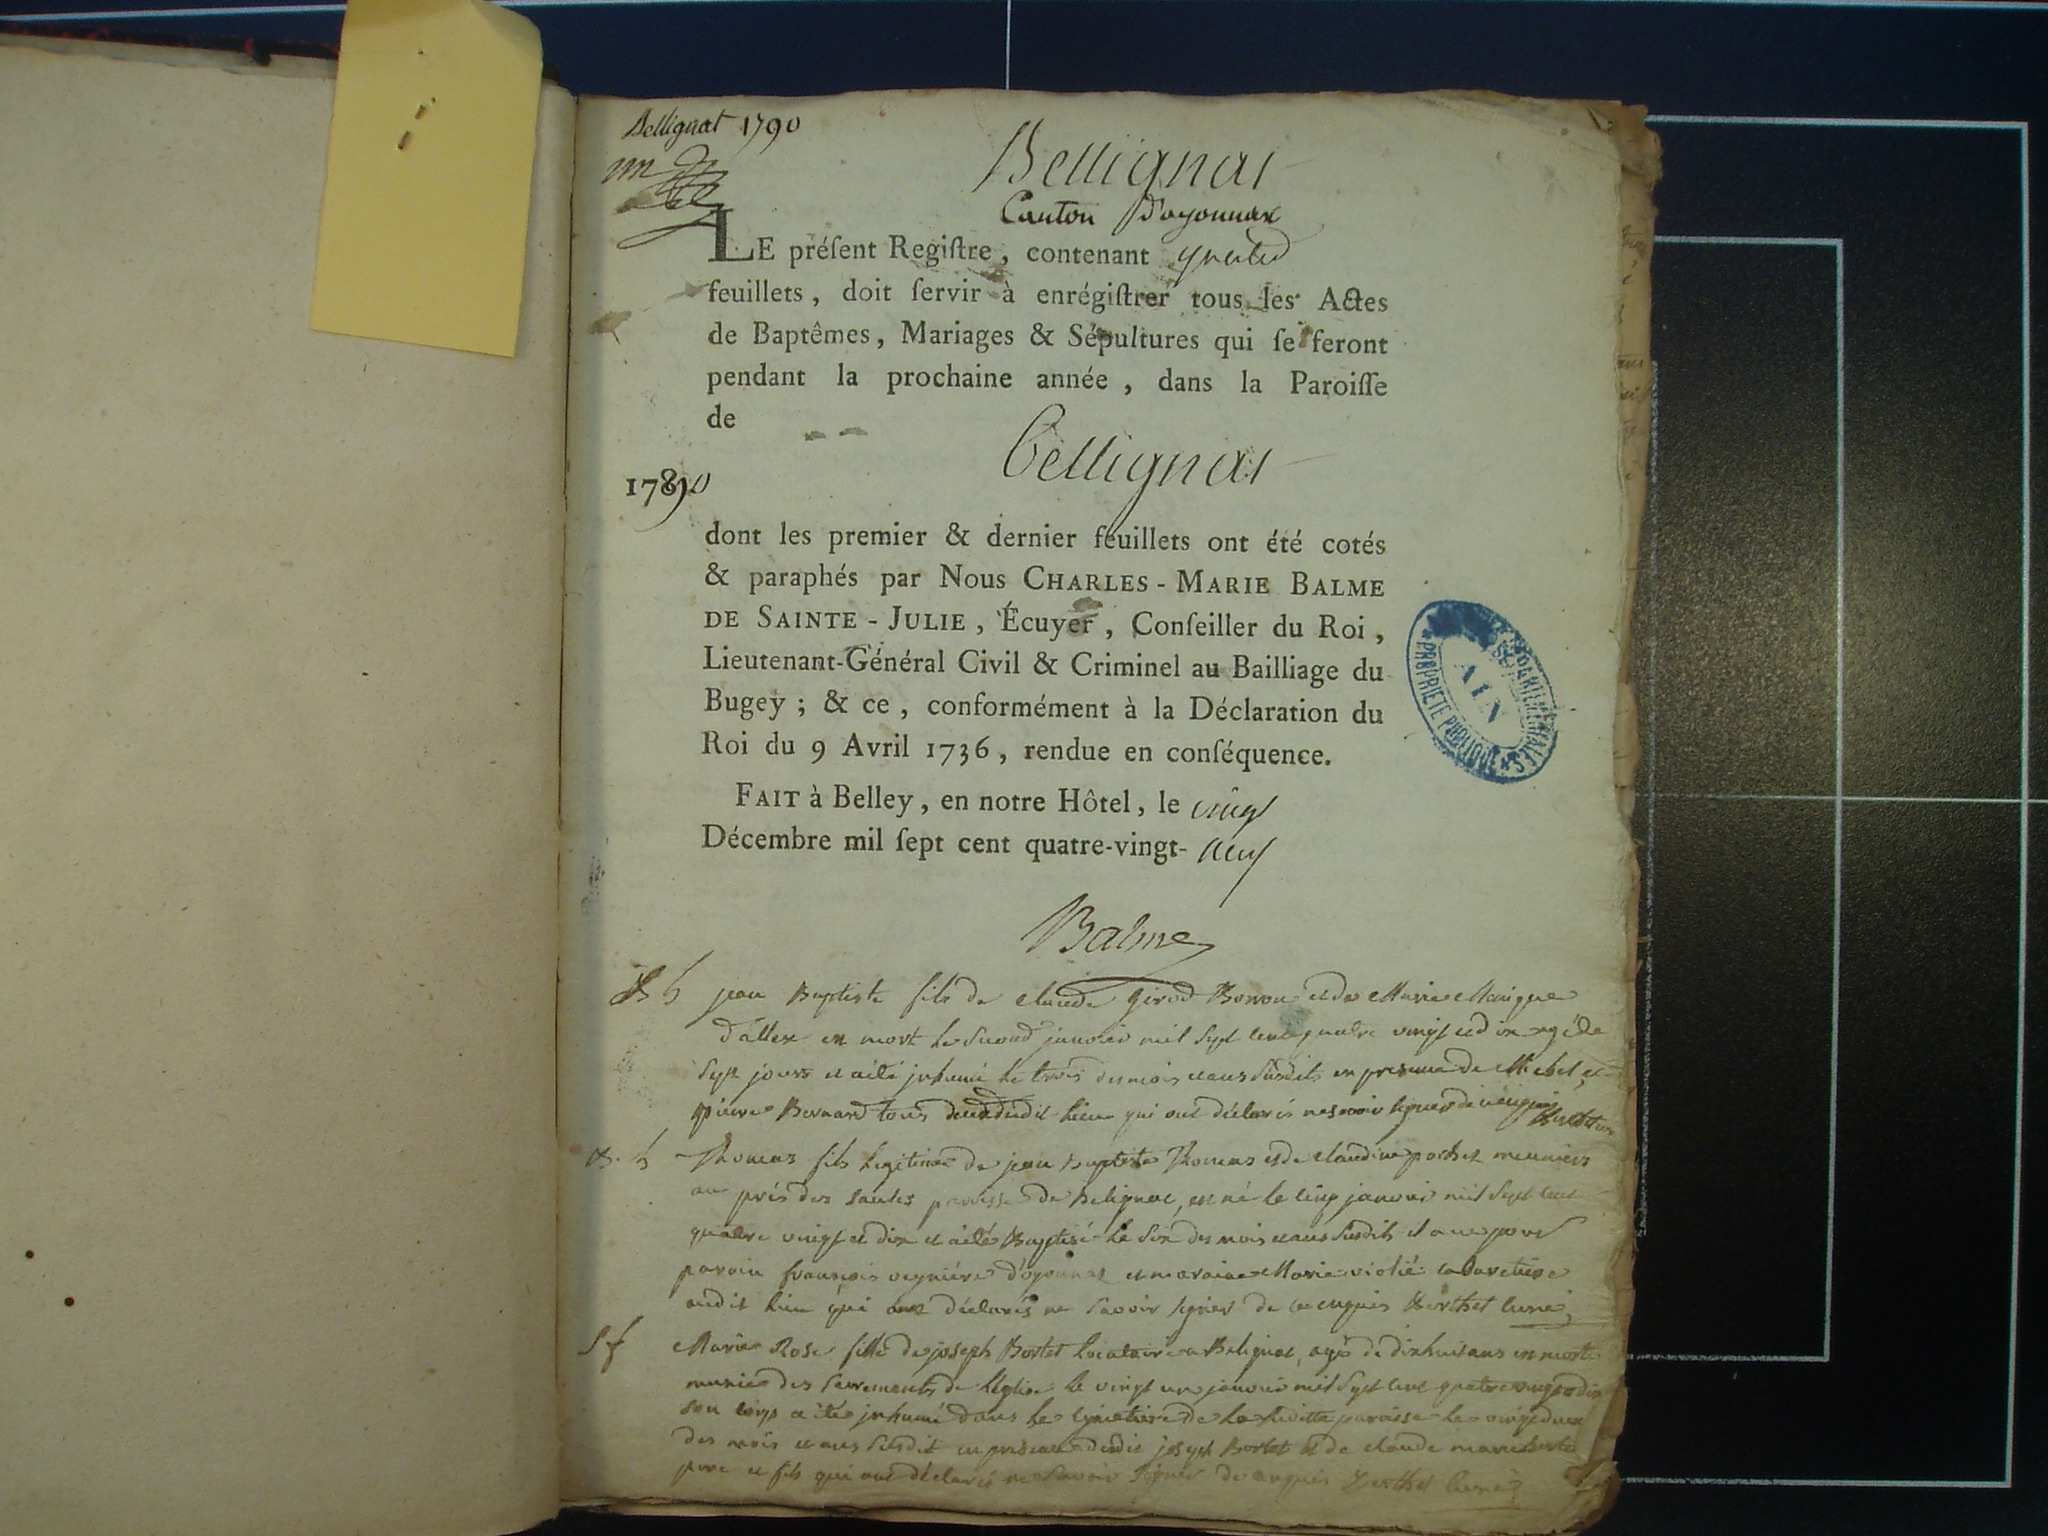 Bellignat 1790
Bellignat
Canton d'oyonnax
LE préſent Regiſtre, contenant quatre
feuillets, doit ſervir à enrégiſtrer tous les Actes
de Baptêmes, Mariages & Sépultures qui ſe feront
pendant la prochaine année, dans la Paroiſſe
de
bellignat
1790
dont les premier & dernier feuillets ont été cotés
& paraphés par Nous CHARLES-MARIE BALME
DE SAINTE-JULIE, Écuyer, Conſeiller du Roi,
Lieutenant-Général Civil & Criminel au Bailliage du
Bugey; & ce, conformément à la Déclaration du
Roi du 9 Avril 1736, rendue en conſéquence.
FAIT à Belley, en notre Hôtel, le vingt
Décembre mil ſept cent quatre-vingt-neuf
Balme
ARCHIVES DÉPARTEMENTALES
AIN
PROPRIÉTÉ PUBLIQUE
jean Baptiste fils de claude girod Borron et de Marie
est mort le second janvier mil sept cent quatre vingt et dix agé de
sept jours et a été inhumé le trois des mois et ans susdits en presence de Michel et
pierre Bernard tous deux dudit lieu qui ont déclarés ne savoir signer de ce enquis
Thomas fils legitime de jean Baptiste Thomas et de claudine pochet meuniers
au prés des saules paroisse de Belignat, est né le cinq janvier mil sept cent
quatre vingt et dix et a été Baptisé le six des mois et ans susdits et a eu pour
parain françois d'oyonnax et maraine Marie
audit lieu qui ont déclarés ne savoir signer de ce enquis Berthet curé
Marie Rose fille de joseph Bortet locataire a Belignat, agée de dix huit ans est morte
munie des sacrements de l'Eglise le vingt un janvier mil sept cent quatre vingt dix
son corps a été inhumé dans le cimetiere de la susditte paroisse le vingt deux
des mois et ans susdit en presence dudit joseph Bortet et de claude marie
pere et fils qui ont déclarés ne savoir signer de ce enquis Berthet curé